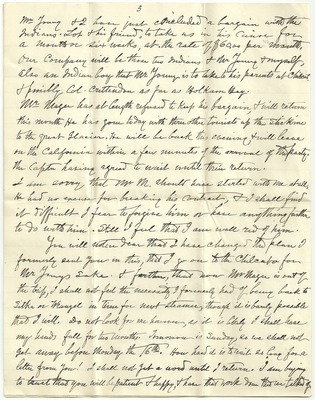 3
Mr Young & I have just concluded a bargain with the
Indians, Lot & his friend, to take us in his canoe for
a month or six weeks, at the rate of $60.00 per month.
Our company will be these two Indians & Mr Young & myself,
also an Indian boy that Mr Young is to take to his parents at Chilcat
& possibly Col. Crittendon as far as Holkam Bay.
Mr. Magee has at length refused to keep his bargain & will return
this month. He has gone today with three other tourists up the Stickine
to the great Glacier. He will be back this evening & will leave
on the California within a few minutes of the arrival of the party.
the Captn having agreed to wait until their return.
I am sorry that Mr M. should have started with me at all.
He had no excuse for breaking his contract, & I shall find
it difficult I fear to forgive him or have anything further
to do with him. Still I feel that I am well rid of him.
You will notice dear that I have changed the plan I
formerly sent you in this, that I go on to the Chilcat for
Mr Young's sake. & farther, that now Mr Magee is out of
the trip, I shall not feel the necessity I formerly had of being back to
Sitka or Wrangel in time for next steamer, though it is barely possible
that I will. Do not look for me however, as it is likely I shall have
my hands full for two months. Tomorrow is Sunday, so we shall not
get away before Monday the 16th. How hard it is to wait so long for a
letter from you! I shall not get a word until I return. I am trying
to trust that you will be patient & happy, & have that work done that we talked of